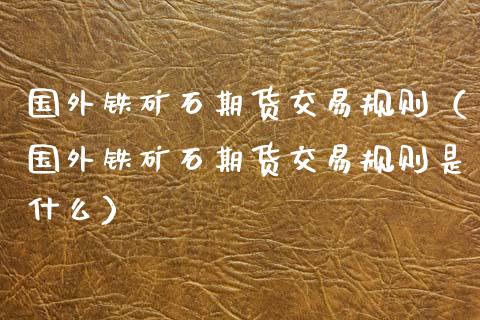 国外铁矿石期货交易规则（
国外铁矿石期货交易规则是
什么）